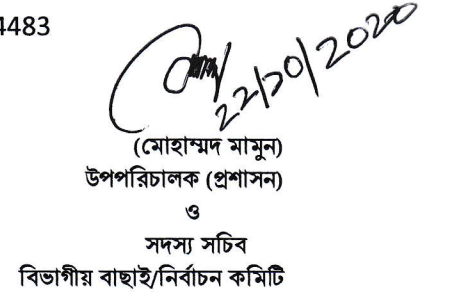 4483
২২/১০/২০২০
(মোহাম্মদ মামুন)
উপপরিচালক (প্রশাসন)
ও
সদস্য সচিব
বিভাগীয় বাছাই/নির্বাচন কমিটি